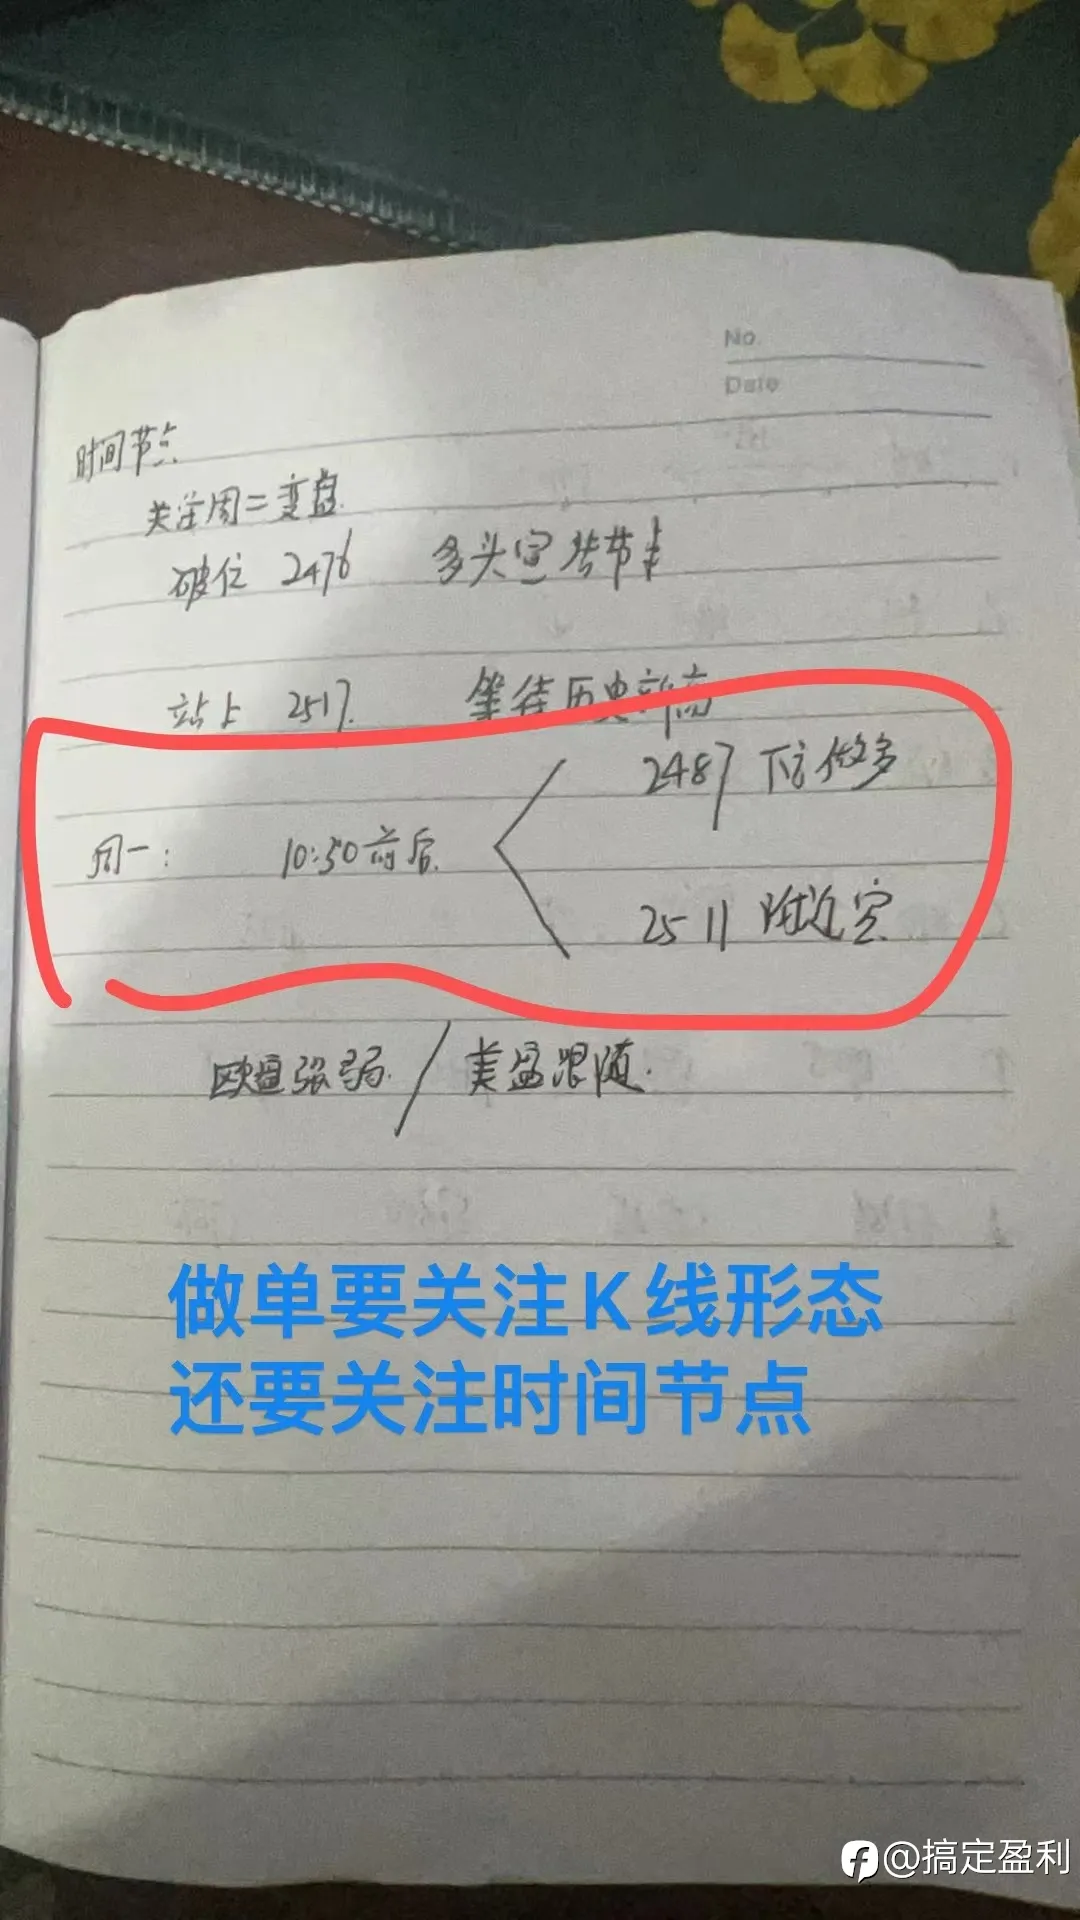 No.
Date
时间节点
关注周二变盘.
破位 2476 多头宣告节束
站上 2517. 等待历史新高
2487 下方做多
周一: 10:50前后.
2511 附近空
欧盘强弱. / 美盘跟随.
做单要关注K线形态
还要关注时间节点
@搞定盈利